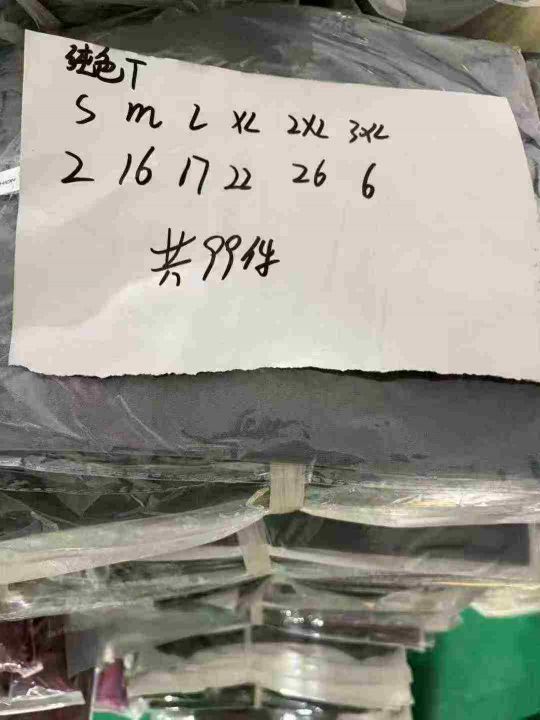 纯色T
S M L XL 2XL 3XL
2 16 17 22 26 6
共99件